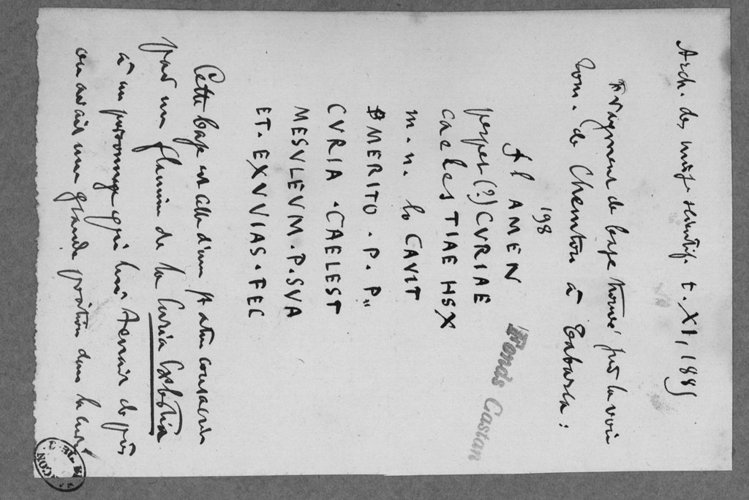 Arch. des miss. scientif. t. XI, 1885
Fragment de base trouvé sur la voie
rom. de Chemtou à Tabarca :
198
flAMEN
perpet(?) CVRIAE
caelesTIAE HSX
m. n. loCAVIT
MERITO . P. P.
CVRIA . CAELEST
MESVLEVM . P. SVA
ET . EXVVIAS . FEC
Fonds Castan
Cette base est celle d'une statue consacrée
par un flamine de la Curia Caelestia
à un personnage qui lui tenait de près
ou avait une grande position dans la curie